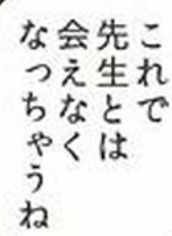 これで
先生とは
会えなく
なっちゃうね